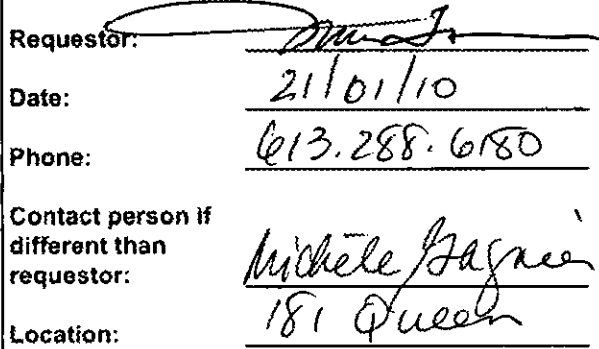 Requestor:
Date: 21/01/10
Phone: 613.288.6180
Contact person if
different than
requestor: Michèle Gagnier
Location: 181 Queen